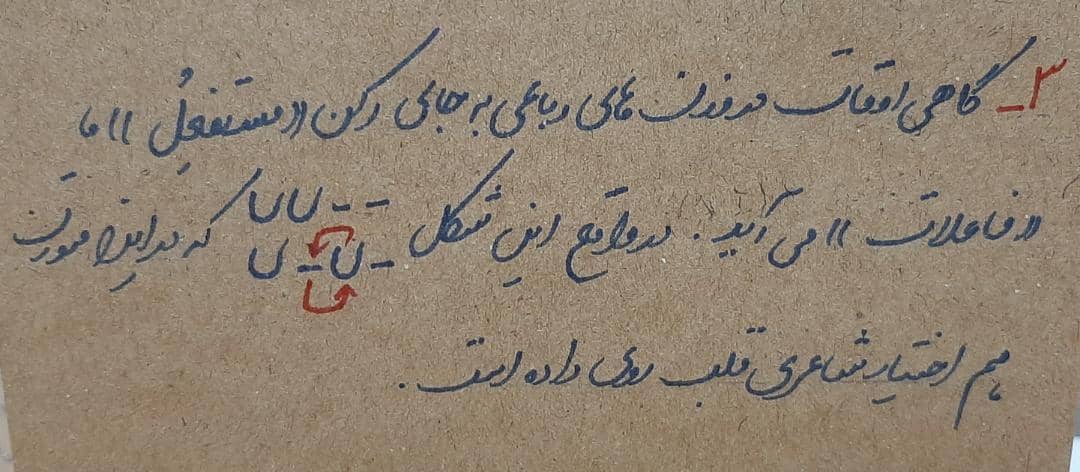 ۳- گاهی اوقات در وزن های رباعی به جای رکن «مستفعِلُ»، ما
«فاعلات» می آید. در واقع این شکل - - U U که در اینصورت
- U - U
هم اختیار شاعری قلب روی داده است.